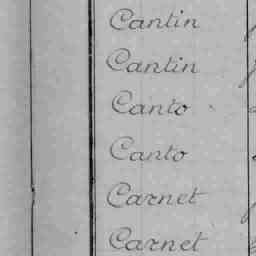 Cantin
Cantin
Canto
Canto
Carnet
Carnet